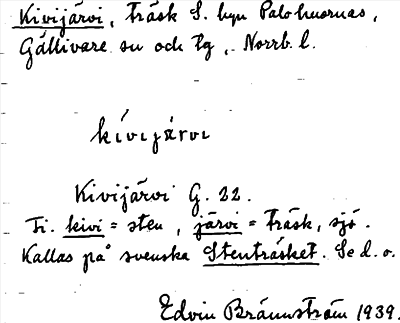 Kivijärvi, träsk S. byn Palohuornas,
Gällivare sn och tg, Norrb. l.
kívijärvi
Kivijärvi G. 22.
Fi. kivi = sten, järvi = träsk, sjö.
Kallas på svenska Stenträsket. Se d. o.
Edvin Brännström 1939.